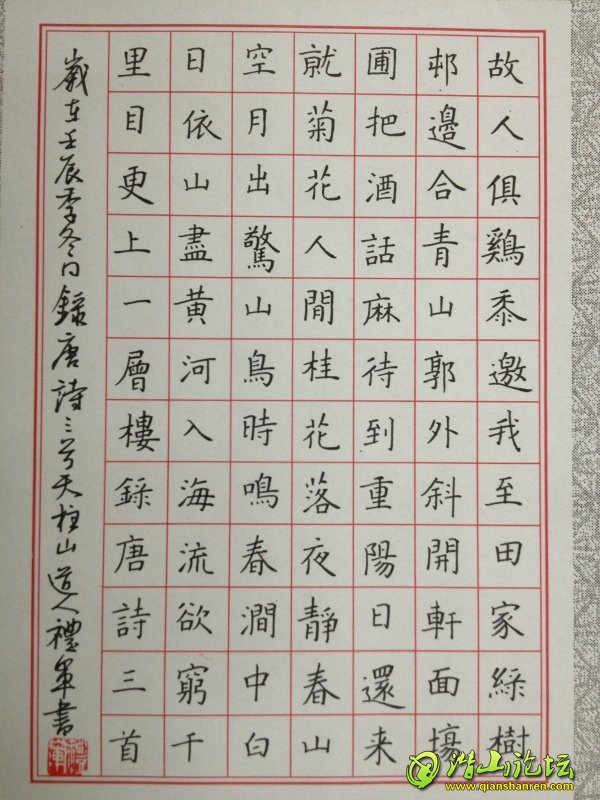 故人俱鷄黍邀我至田家綠樹
邨邊合青山郭外斜開軒面塲
圃把酒話麻待到重陽日還来
就菊花人閒桂花落夜靜春山
空月出驚山鳥時鳴春澗中白
日依山盡黃河入海流欲窮千
里目更上一層樓錄唐詩三首
歲在壬辰季冬日錄唐詩三首天柱山道人禮軍書
潜山论坛
www.qianshanren.com